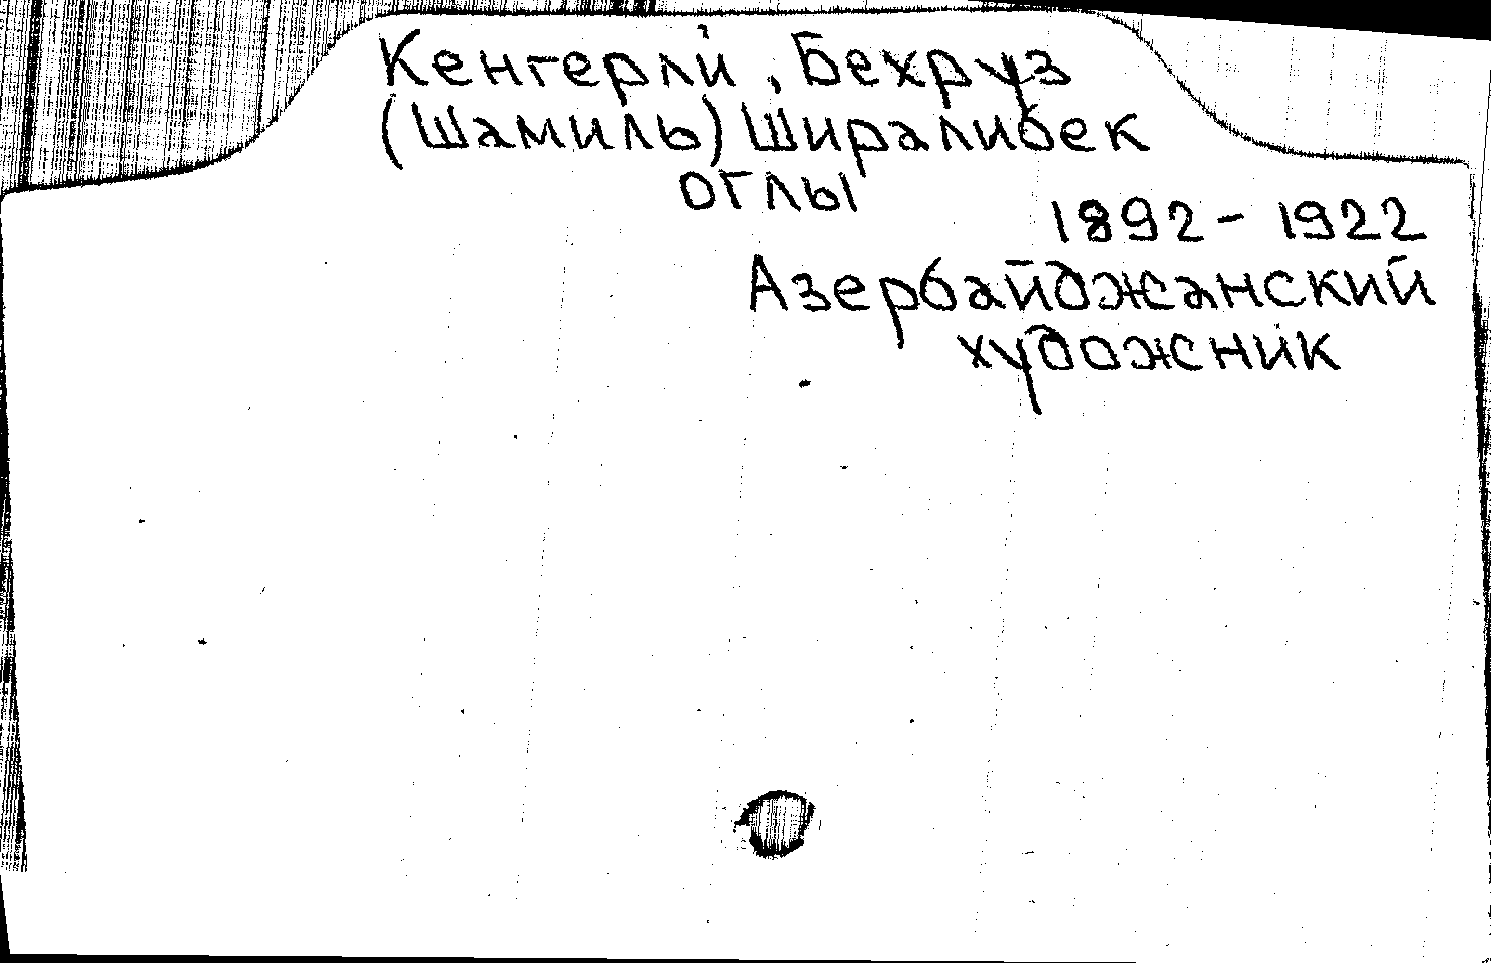 Кенгерли, Бехруз
(Шамиль) Ширалибек
оглы
1892 - 1922
Азербайджанский
художник